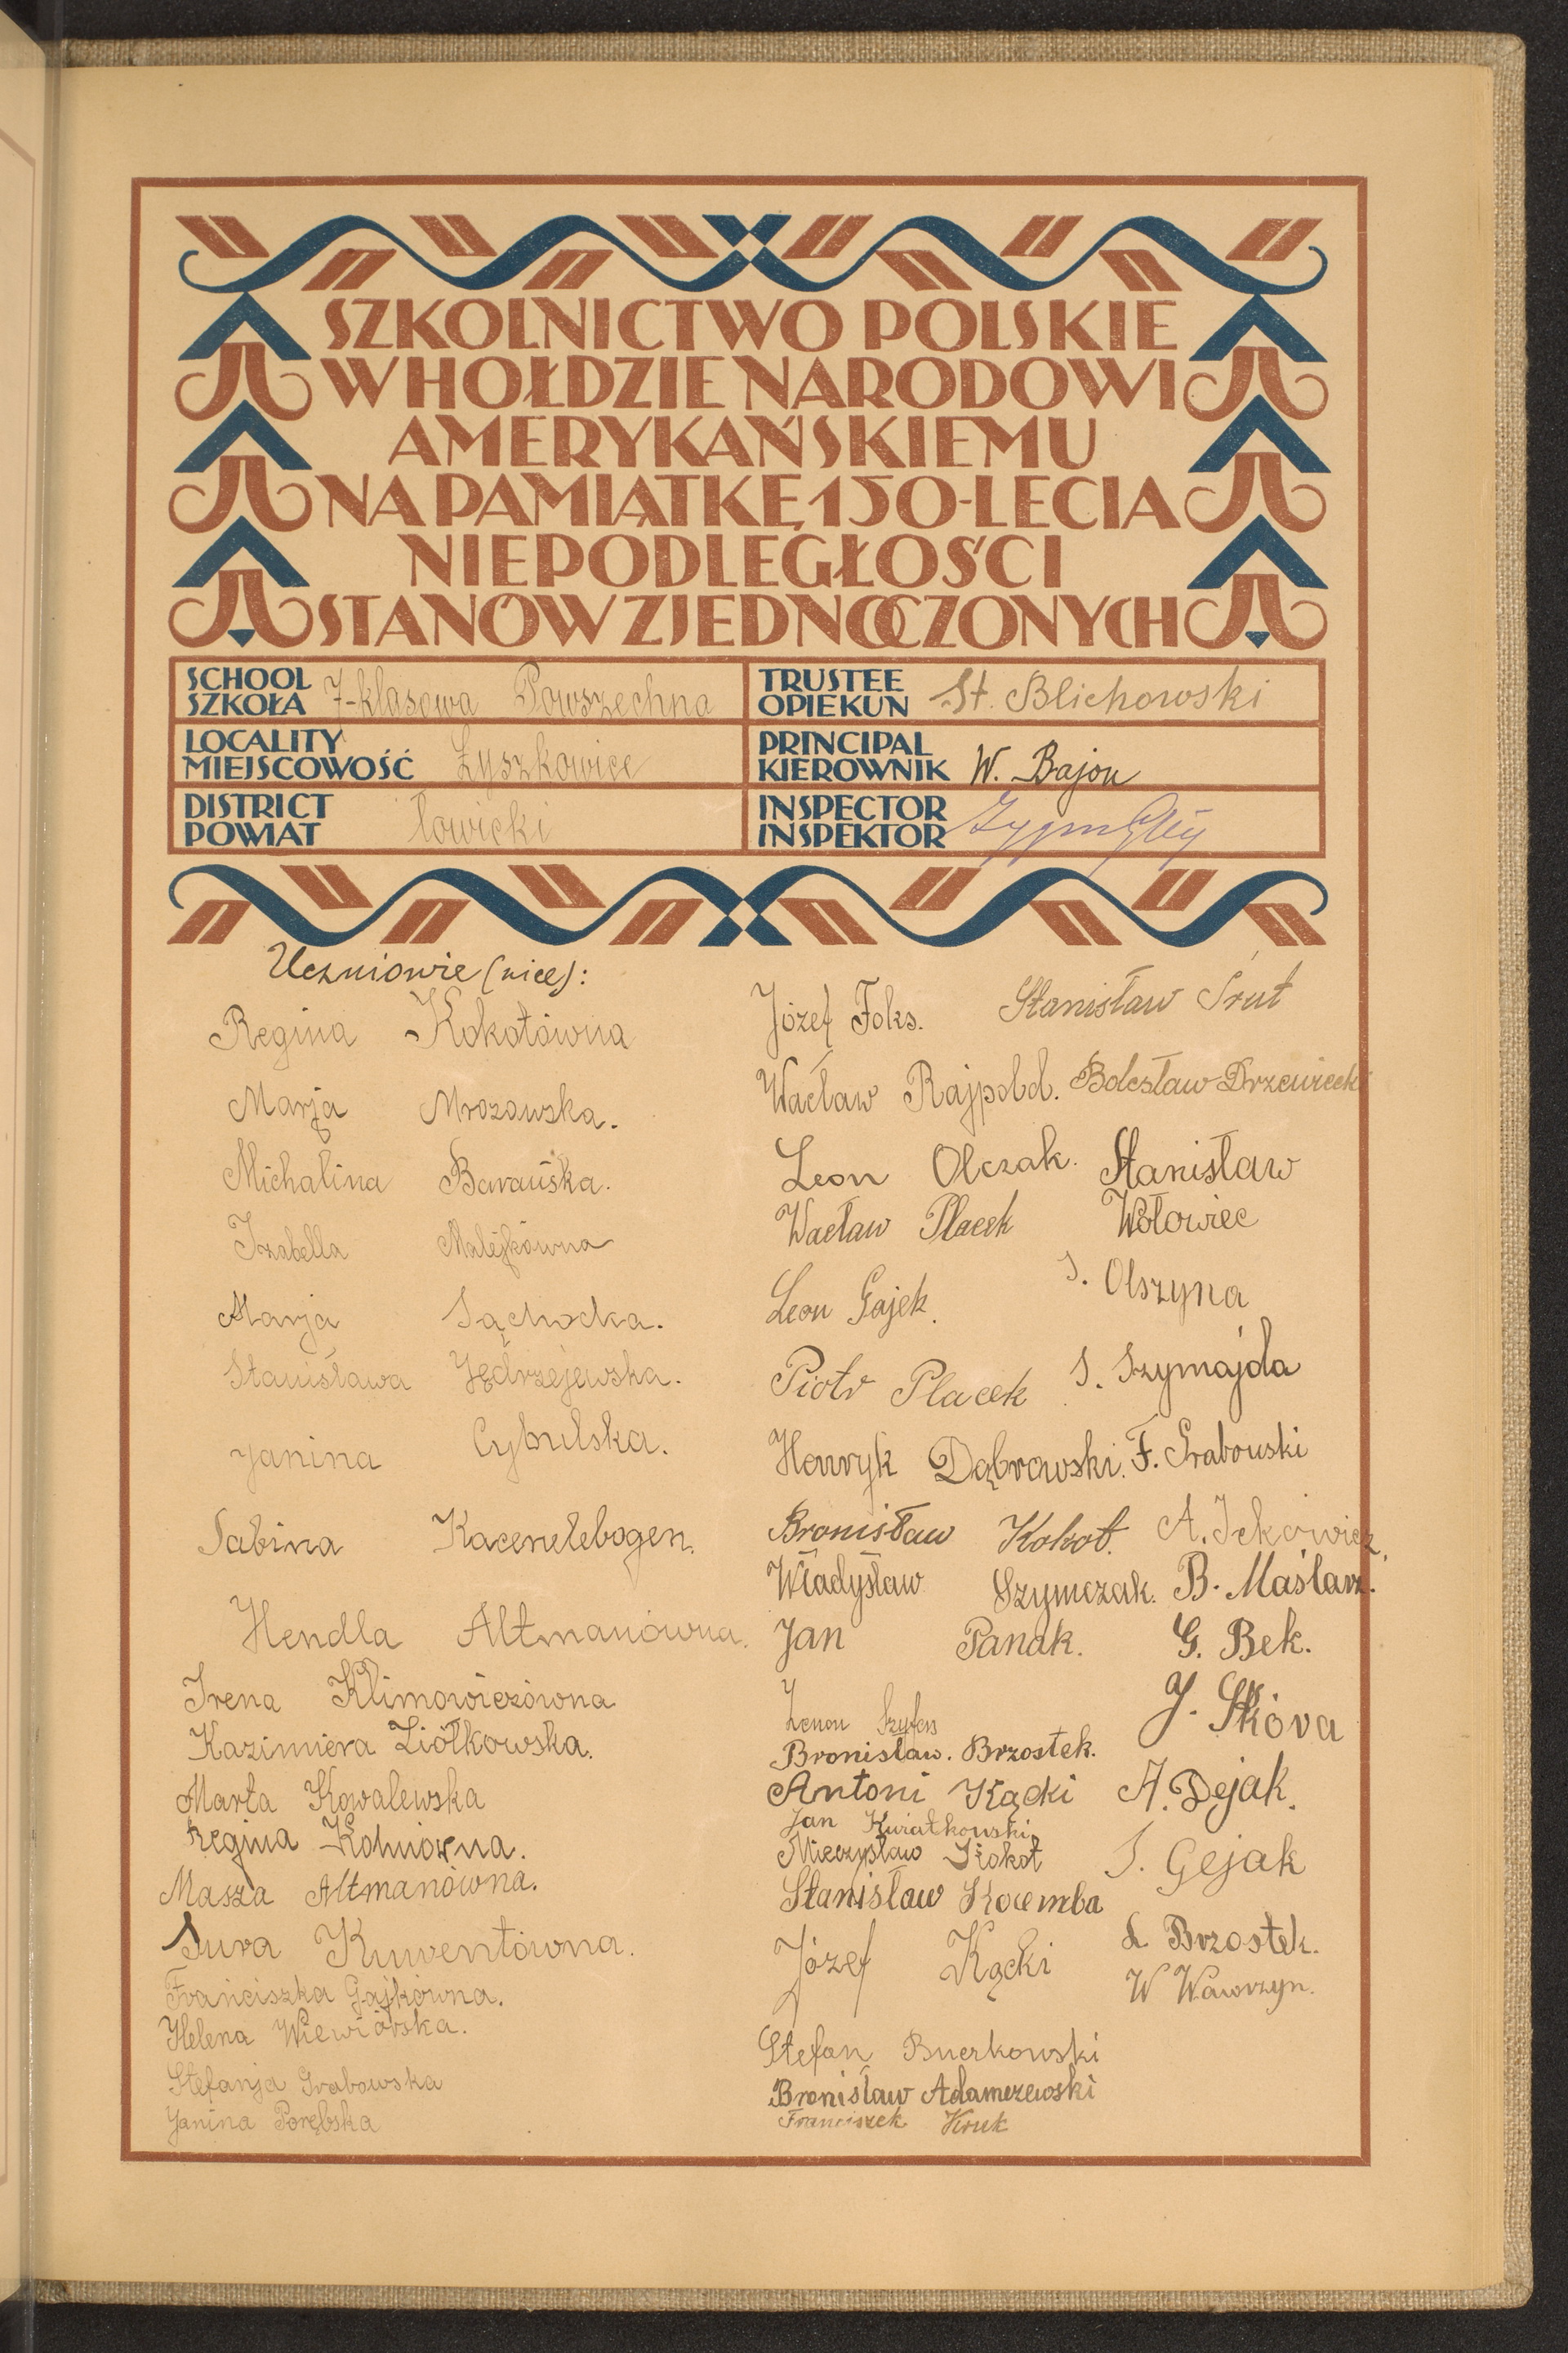 SZKOLNICTWO POLSKIE
W HOŁDZIE NARODOWI
AMERYKAŃSKIEMU
NA PAMIĄTKĘ 150-LECIA
NIEPODLEGŁOŚCI
STANÓW ZJEDNOCZONYCH
SCHOOL
SZKOŁA 7-klasowa Powszechna
LOCALITY
MIEJSCOWOŚĆ Łyszkowice
DISTRICT
POWIAT Łowicki
TRUSTEE
OPIEKUN St. Blichowski
PRINCIPAL
KIEROWNIK W. Bajon
INSPECTOR
INSPEKTOR
Uczniowie (nice):
Regina Kokotówna
Marja Mrozowska.
Michalina Barańska.
Izabella Malejkówna
Marja Sąchocka.
Stanisława Jędrzejewska.
Janina Cybulska.
Sabina Kacenelebogen.
Hendla Altmanówna.
Irena Klimowiczówna
Kazimiera Ziółkowska.
Marta Kowalewska
Regina
Masza Altmanówna.
Sura Kuwentówna.
Franciszka Gajkówna.
Helena Wiewiórska.
Stefanja Grabowska
Janina Porębska
Józef Foks.
Wacław Rajpold.
Leon Olczak.
Wacław Placek
Leon Gajek.
Piotr Placek
Henryk Dąbrowski.
Bronisław Kokot.
Władysław Szymczak.
Jan Panak.
Zenon
Bronisław. Brzostek.
Antoni Kącki
Jan Kwiatkowski.
Mieczysław Kokot
Stanisław Kocemba
Józef Kącki
Stefan
Bronisław Adamczewski
Franciszek Kruk
Stanisław Śrut
Bolesław Drzewiecki
Stanisław
Wołowiec
S. Olszyna
S. Szymajda
F. Grabowski
A. Ickowicz.
B. Maślarz.
G. Bek.
J. Skóra
A. Dejak.
S. Gejak
Brzostek.
W Wawrzyn.